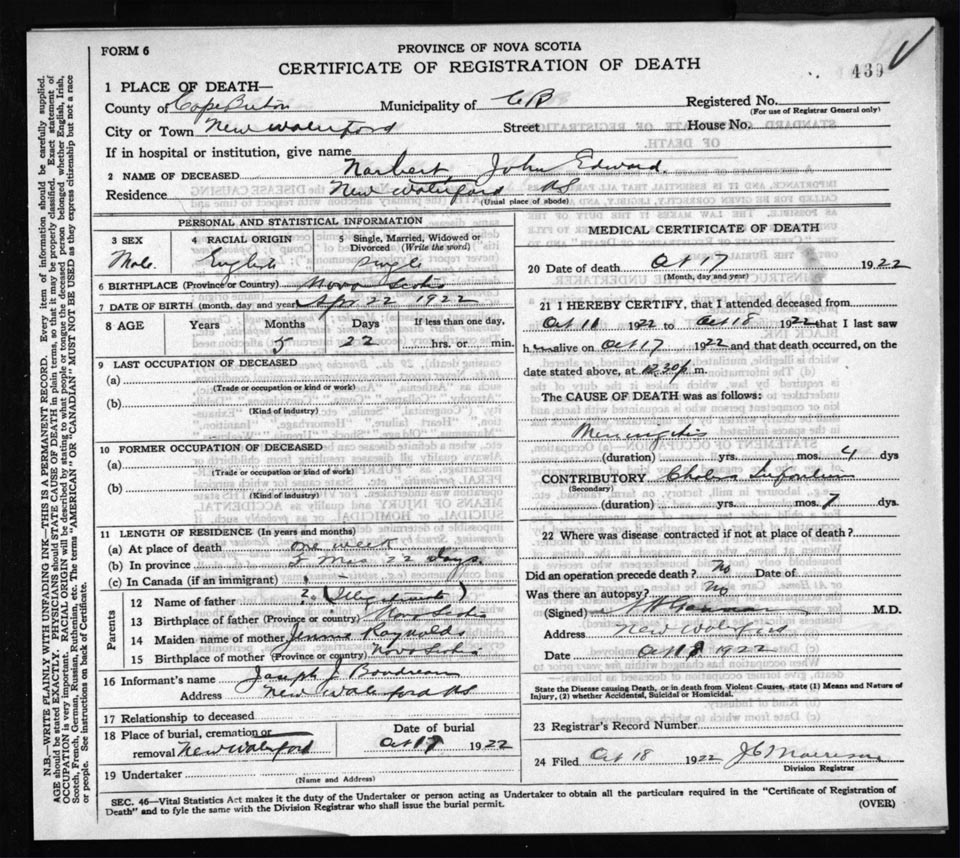 FORM 6
PROVINCE OF NOVA SCOTIA
CERTIFICATE OF REGISTRATION OF DEATH
439
1 PLACE OF DEATH—
County of Cape Breton Municipality of C B Registered No.
(For use of Registrar General only)
City or Town New Waterford Street House No.
If in hospital or institution, give name
2 NAME OF DECEASED Norbert John Edward.
Residence New Waterford NS
(Usual place of abode)
PERSONAL AND STATISTICAL INFORMATION
3 SEX 4 RACIAL ORIGIN 5 Single, Married, Widowed or Divorced (Write the word)
Male. English single
6 BIRTHPLACE (Province or Country) Nova Scotia
7 DATE OF BIRTH (month, day and year) Apr 22 1922
8 AGE Years Months Days If less than one day,
5 22 hrs. or min.
9 LAST OCCUPATION OF DECEASED
(a)
(Trade or occupation or kind or work)
(b)
(Kind of industry)
10 FORMER OCCUPATION OF DECEASED
(a)
(Trade or occupation or kind of work)
(b)
(Kind of industry)
11 LENGTH OF RESIDENCE (In years and months)
(a) At place of death one week
(b) In province 5 Mos 22 days.
(c) In Canada (if an immigrant)
Parents
12 Name of father ? (Illegitimate)
13 Birthplace of father (Province or country) Nova Scotia
14 Maiden name of mother Jennie Raynolds
15 Birthplace of mother (Province or country) Nova Scotia
16 Informant's name Joseph J Boudreau
Address New Waterford NS
17 Relationship to deceased
18 Place of burial, cremation or removal New Waterford
Date of burial
Oct 1922
19 Undertaker
(Name and Address)
MEDICAL CERTIFICATE OF DEATH
20 Date of death Oct 17 1922
(Month, day and year)
21 I HEREBY CERTIFY, that I attended deceased from
Oct 11 1922 to Oct 18 1922 that I last saw
h alive on Oct 17 1922 and that death occurred, on the
date stated above, at 12.30 p. m.
The CAUSE OF DEATH was as follows:
Meningitis
(duration) yrs. mos. 4 dys
CONTRIBUTORY Cholera Infantum
(Secondary)
(duration) yrs. mos. 7 dys.
22 Where was disease contracted if not at place of death?
Did an operation precede death? No Date of
Was there an autopsy? No
(Signed) M.D.
Address New Waterford
Date Oct 18 1922
State the Disease causing Death, or in death from Violent Causes, state (1) Means and Nature of
Injury, (2) whether Accidental, Suicidal or Homicidal.
23 Registrar's Record Number
24 Filed Oct 18 1922 J C Morrison
Division Registrar
SEC. 46—Vital Statistics Act makes it the duty of the Undertaker or person acting as Undertaker to obtain all the particulars required in the "Certificate of Registration of
Death" and to fyle the same with the Division Registrar who shall issue the burial permit.
(OVER)
N.B.—WRITE PLAINLY WITH UNFADING INK—THIS IS A PERMANENT RECORD. Every item of information should be carefully supplied.
AGE should be stated EXACTLY. PHYSICIANS should STATE CAUSE OF DEATH in plain terms, so that it may be properly classified. Exact statement of
OCCUPATION is very important. RACIAL ORIGIN will be described by stating to what people or tongue the deceased person belonged whether English, Irish,
Scotch, French, German, Russian, Ruthenian, etc. The terms "AMERICAN" OR "CANADIAN" MUST NOT BE USED as they express citizenship but not a race
or people. See instructions on back of Certificate.